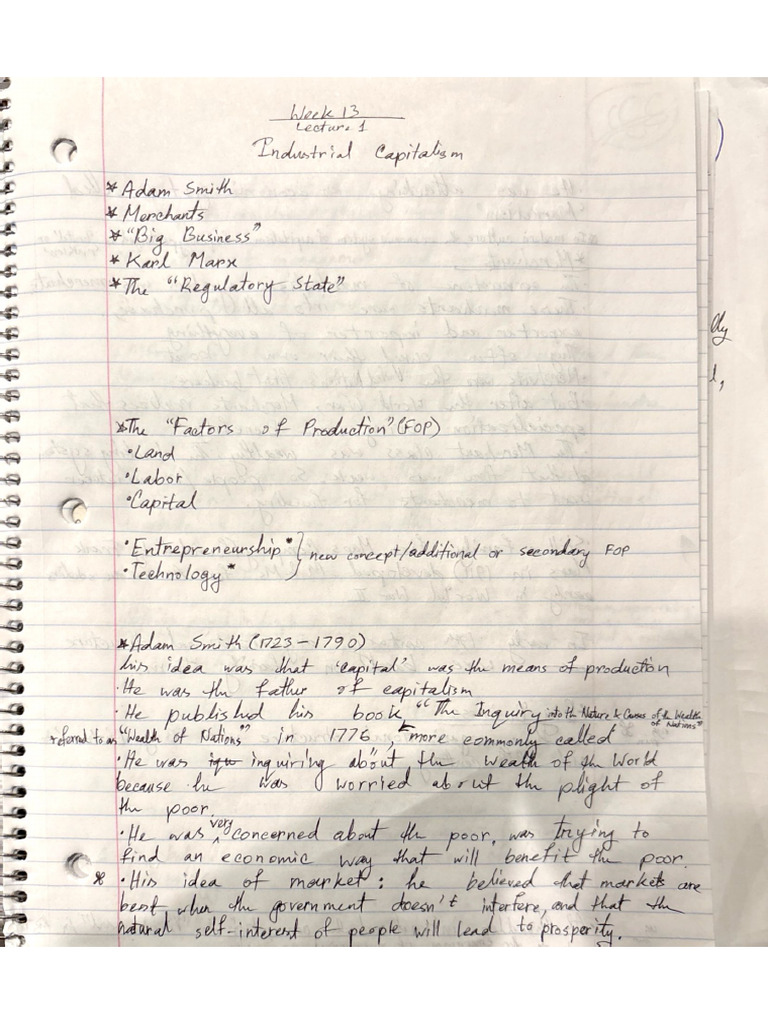 Week 13
Lecture 1
Industrial Capitalism
* Adam Smith
* Merchants
* "Big Business"
* Karl Marx
* The "Regulatory State"
* The "Factors of Production" (FOP)
• Land
• Labor
• Capital
• Entrepreneurship * } new concept/additional or secondary FOP
• Technology *
* Adam Smith (1723 – 1790)
his idea was that 'capital' was the means of production
• He was the father of capitalism
• He published his book "The Inquiry into the Nature & Causes of the Wealth of Nations"
referred to as "Wealth of Nations" in 1776, more commonly called
• He was inquiring about the Wealth of the World
because he was worried about the plight of
the poor.
• He was very concerned about the poor, was trying to
find an economic way that will benefit the poor.
* • His idea of market: he believed that markets are
best when the government doesn't interfere, and that the
natural self-interest of people will lead to prosperity.